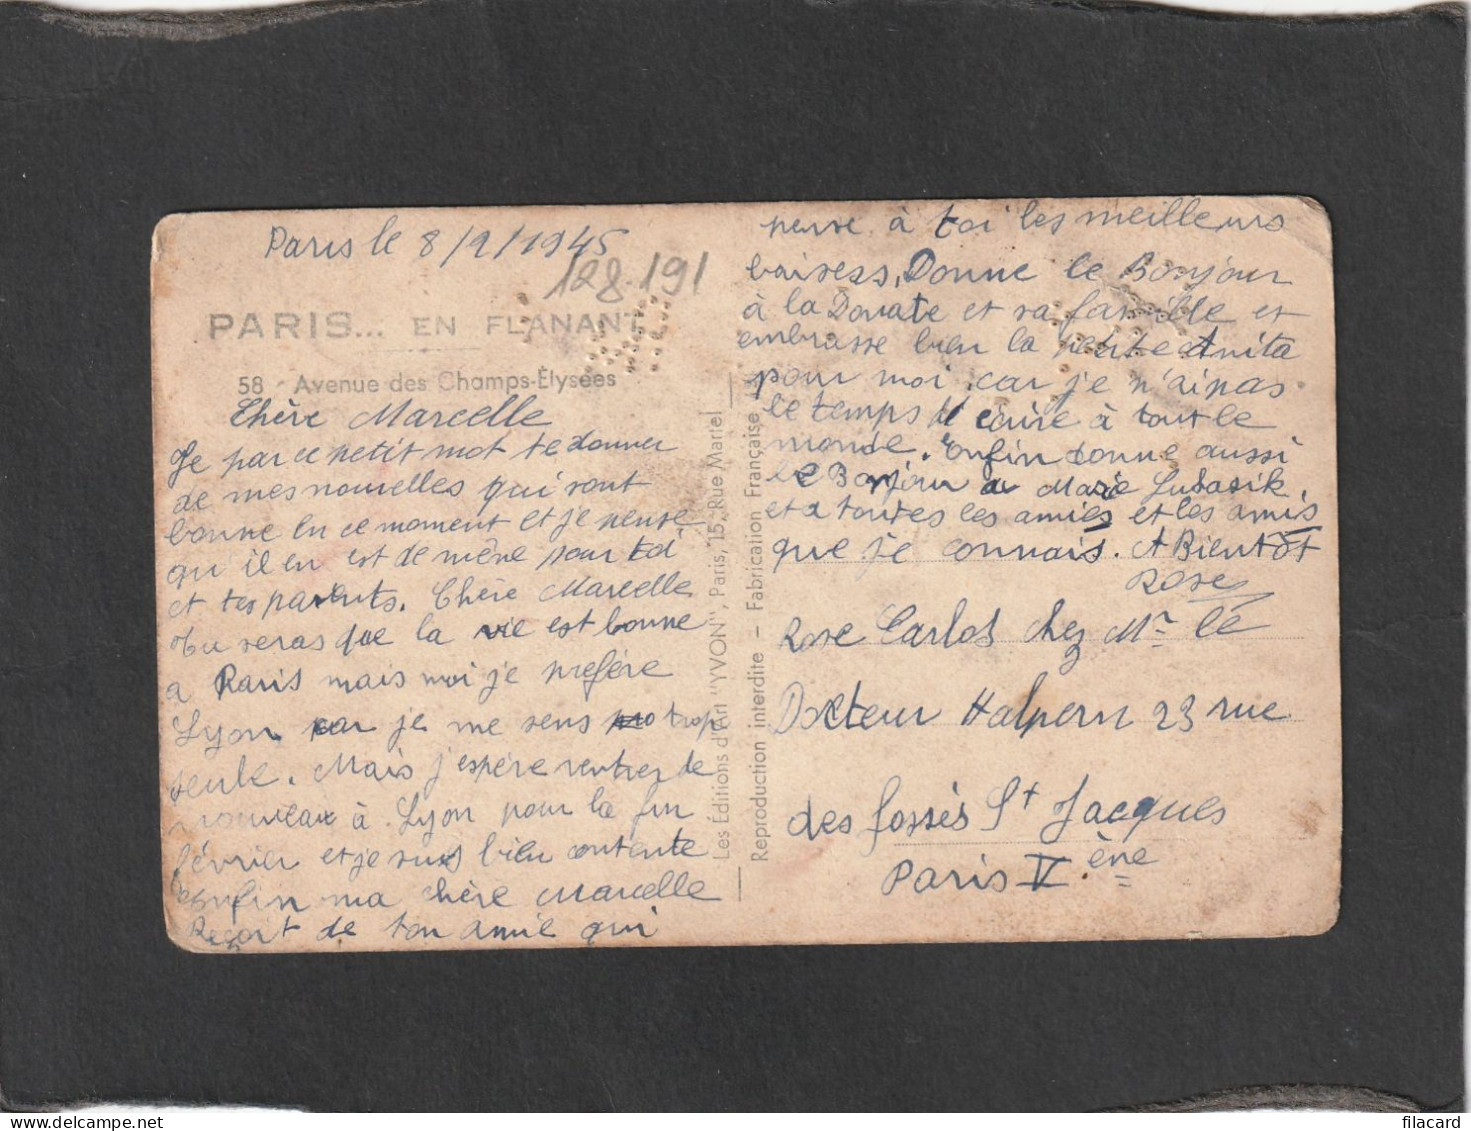 Paris le 8/2/1945
128.191
PARIS... EN FLANANT
58 - Avenue des Champs-Élysées
Chère Marcelle
Je par ce petit mot te donner
de mes nouvelles qui sont
bonne en ce moment et je pense
qu'il en est de même pour toi
et tes parents. Chère Marcelle
tu seras que la vie est bonne
a Paris mais moi je prefère
Lyon car je me sens trop
seule. Mais j'espère rentrer de
nouveau à Lyon pour la fin
février et je suis bien contente
enfin ma chère Marcelle
Reçoit de ton amie qui
pense à toi les meilleurs
baisess, Donne le Bonjour
à la Donate et sa famille et
embrasse bien la petite Anita
pour moi car je n'ai pas
le temps d'écrire à tout le
monde. Enfin donne aussi
le Bonjour a Marie Lubasik
et a toutes les amies et les amis
que je connais. A Bientôt
Rose
Les Éditions d'Art "YVON", Paris, 15, Rue Martel
Reproduction interdite - Fabrication Française
Rose Carlos chez Mr le
Docteur Halpern 23 rue
des fossés St Jacques
Paris V ène
filacard.delcampe.net